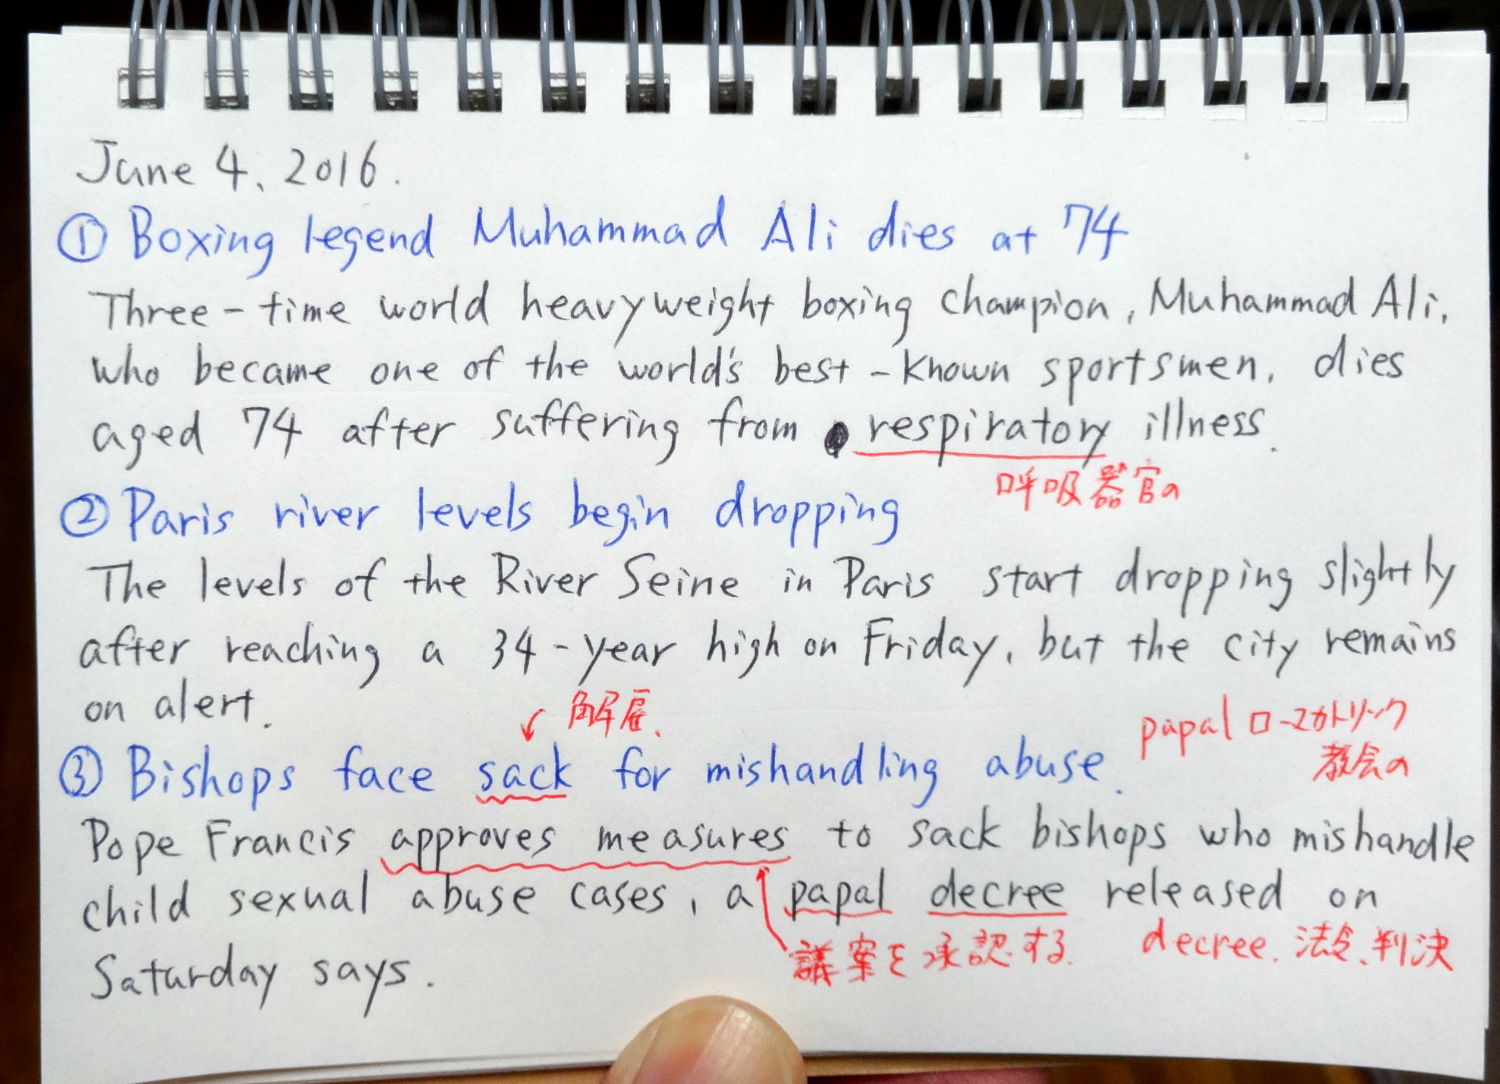 June 4, 2016.
① Boxing legend Muhammad Ali dies at 74
Three-time world heavyweight boxing champion, Muhammad Ali,
who became one of the world's best-known sportsmen, dies
aged 74 after suffering from respiratory illness.
呼吸器官の
② Paris river levels begin dropping
The levels of the River Seine in Paris start dropping slightly
after reaching a 34-year high on Friday, but the city remains
on alert.
解雇、
papal ローマカトリック
教会の
③ Bishops face sack for mishandling abuse.
Pope Francis approves measures to sack bishops who mishandle
child sexual abuse cases, a papal decree released on
議案を承認する.
decree. 法令、判決
Saturday says.